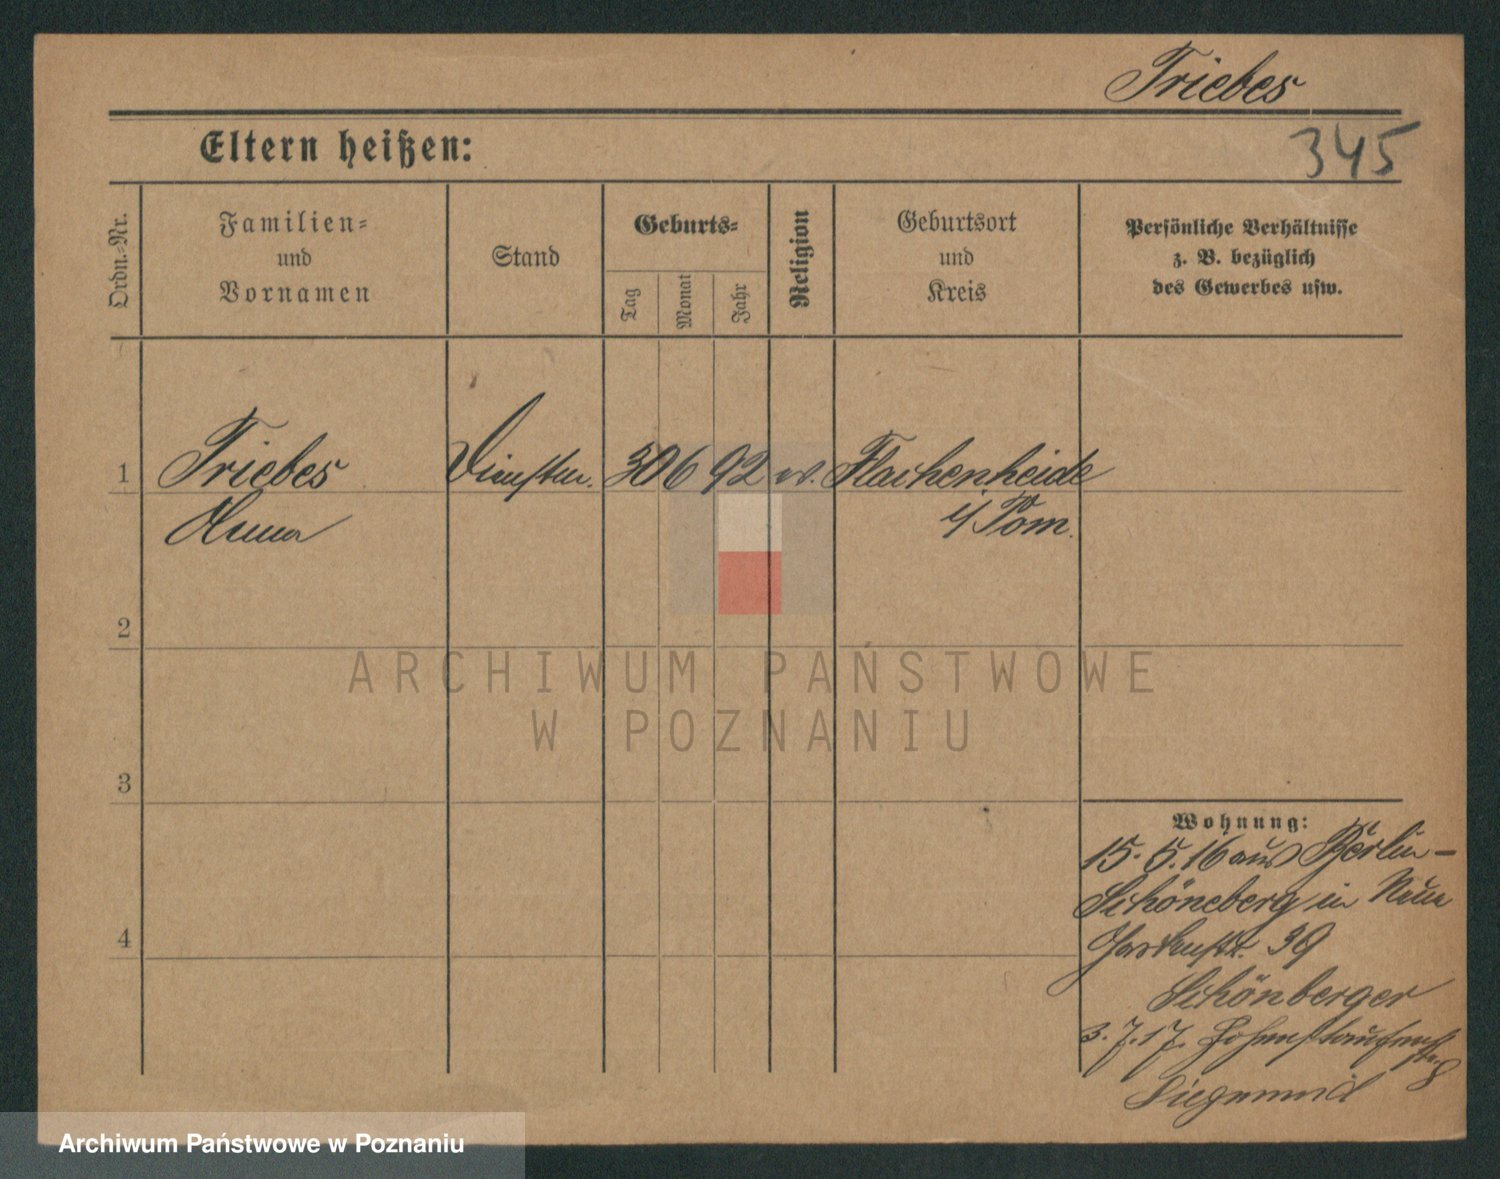 Triebes
Eltern heißen:
345
Ordn.=Nr.
Familien=
und
Vornamen
Stand
Geburts=
Tag
Monat
Jahr
Religion
Geburtsort
und
Kreis
Persönliche Verhältnisse
z. B. bezüglich
des Gewerbes usw.
1
Triebes
Anna
Dienstm.
30 6 92
ev.
Flachenheide
i/Pom.
2
3
4
Wohnung:
15. 5. 16 aus Berlin-
Schöneberg in Neue
Gartenstr. 39
Schönberger
3. 7. 17. Hohenstaufenstr. 8
Siegmund
ARCHIWUM PAŃSTWOWE
W POZNANIU
Archiwum Państwowe w Poznaniu